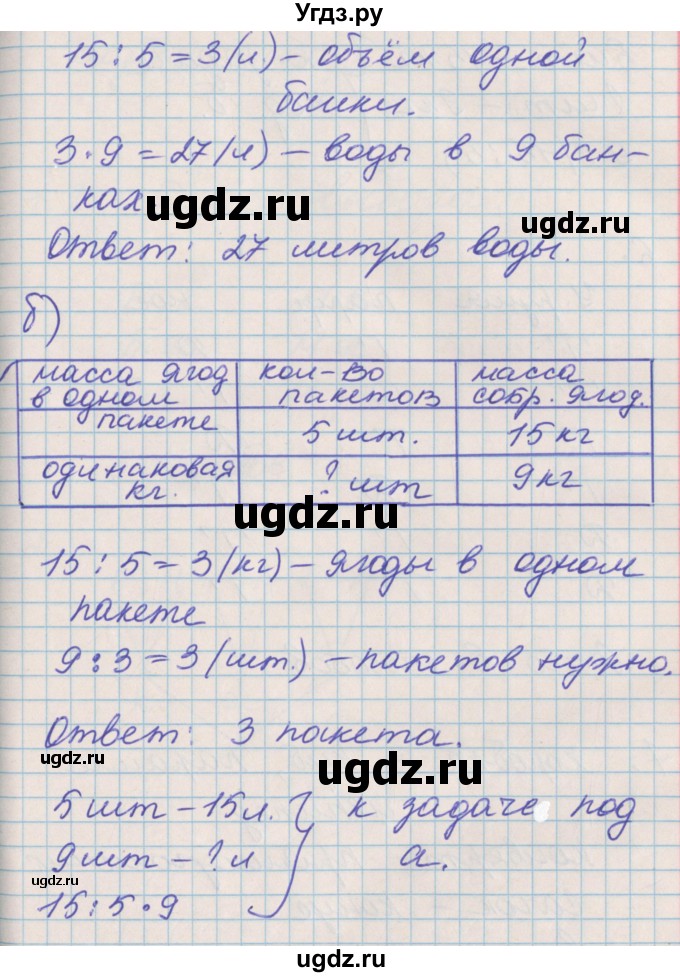 Угдз.ру
15 : 5 = 3 (л) – объём одной
банки.
3 · 9 = 27 (л) – воды в 9 бан-
ках
ugdz.ru
ugdz.ru
Ответ: 27 литров воды.
б)
масса ягод в одном пакете | кол-во пакетов | масса собр. ягод.
5 шт. | 15 кг
одинаковая кг. | ? шт | 9 кг
ugdz.ru
15 : 5 = 3 (кг) – ягоды в одном
пакете
9 : 3 = 3 (шт.) – пакетов нужно.
Ответ: 3 пакета.
ugdz.ru
ugdz.ru
5 шт – 15 л. } к задаче под
9 шт – ? л а.
ugdz.ru
15 : 5 · 9
ugdz.ru